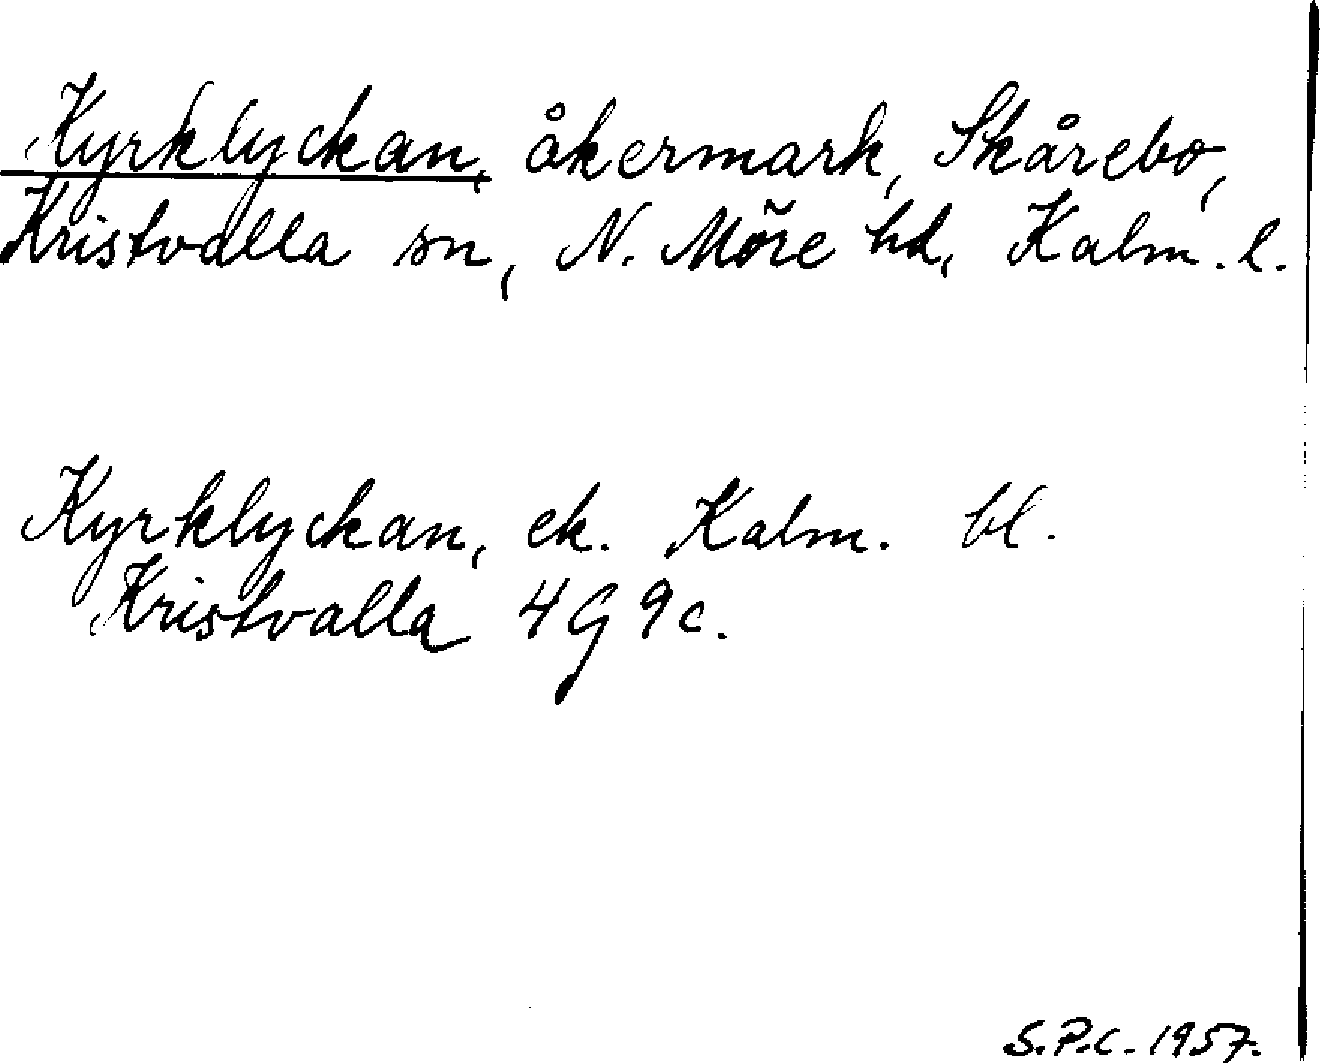 Kyrklyckan, åkermark, Skårebo,
Kristvalla sn, N. Möre hd, Kalm. l.
Kyrklyckan, ek. Kalm. bl.
Kristvalla 4G9c.
S.P.C. 1957.